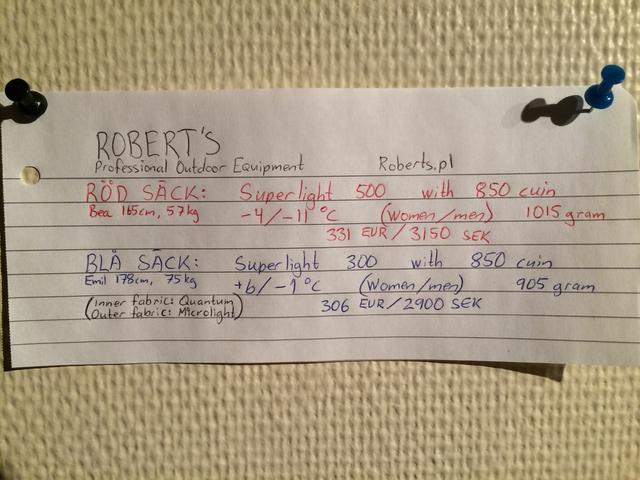 ROBERT'S
Professional Outdoor Equipment Roberts.pl
RÖD SÄCK: Superlight 500 with 850 cuin
Bea 165cm, 57kg -4/-11 °C (Women/men) 1015 gram
331 EUR / 3150 SEK
BLÅ SÄCK: Superlight 300 with 850 cuin
Emil 178cm, 75kg +6/-1°C (Women/men) 905 gram
(Inner fabric: Quantum
Outer fabric: Microlight) 306 EUR/2900 SEK